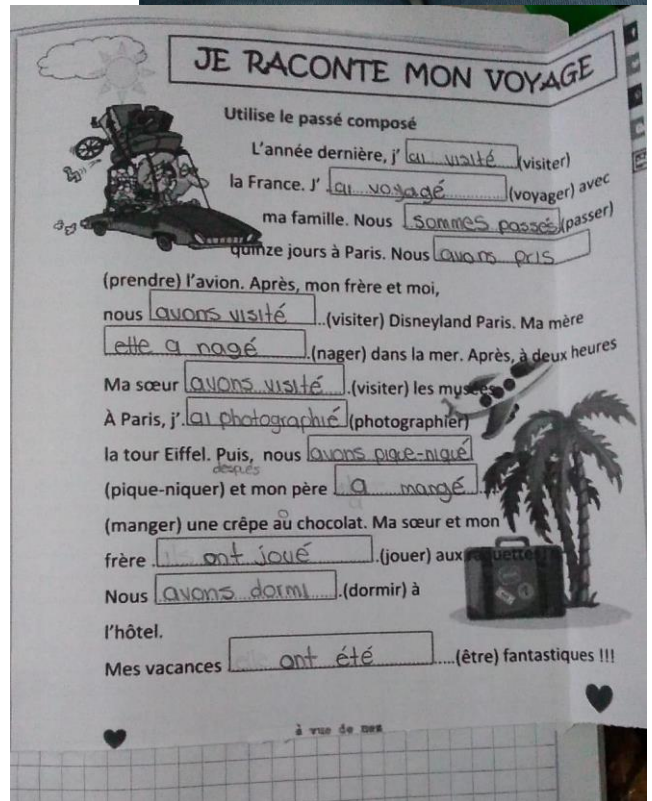 JE RACONTE MON VOYAGE
Utilise le passé composé
L'année dernière, j' ai visité (visiter)
la France. J' ai voyagé (voyager) avec
ma famille. Nous sommes passés (passer)
quinze jours à Paris. Nous avons pris
(prendre) l'avion. Après, mon frère et moi,
nous avons visité (visiter) Disneyland Paris. Ma mère
elle a nagé (nager) dans la mer. Après, à deux heures
Ma sœur avons visité (visiter) les musées
À Paris, j' ai photographié (photographier)
la tour Eiffel. Puis, nous avons pique-niqué
después
(pique-niquer) et mon père a mangé
(manger) une crêpe au chocolat. Ma sœur et mon
frère ont joué (jouer) aux raquettes
Nous avons dormi (dormir) à
l'hôtel.
Mes vacances ont été (être) fantastiques !!!
à vue de nez